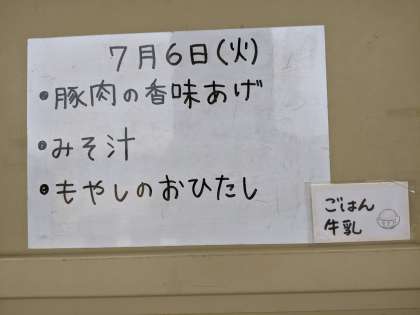 7月6日(火)
•豚肉の香味あげ
•みそ汁
•もやしのおひたし
ごはん
牛乳